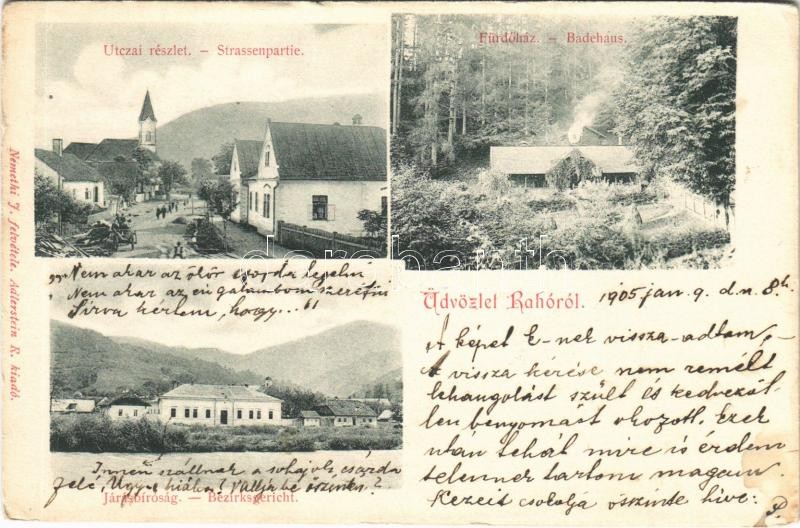 Utczai részlet. – Strassenpartie.
Fürdőház. – Badehaus.
Nemethi J. felvétele. Adlerstein R. kiadó.
darabanth
"Nem akar az ökör csorda legelni
Nem akar az én galambom szeretni
Sirva kérlem, hogy..."
Üdvözlet Rahóról.
1905 jan. 9. d.n. 8h.
A képet E-nek vissza-adtam,
A vissza kérése nem remélt
lehangolást szült és kedvezőt-
len benyomást okozott. Ezek
után tehát mire is érdem-
telennek tartom magam.
Kezeit csókolja őszinte hive:
P.
Innen szállnak a sohajok csárda
felé, Ugy-e hiába? Vallja be őszintén?
Járásbíróság. – Bezirksgericht.